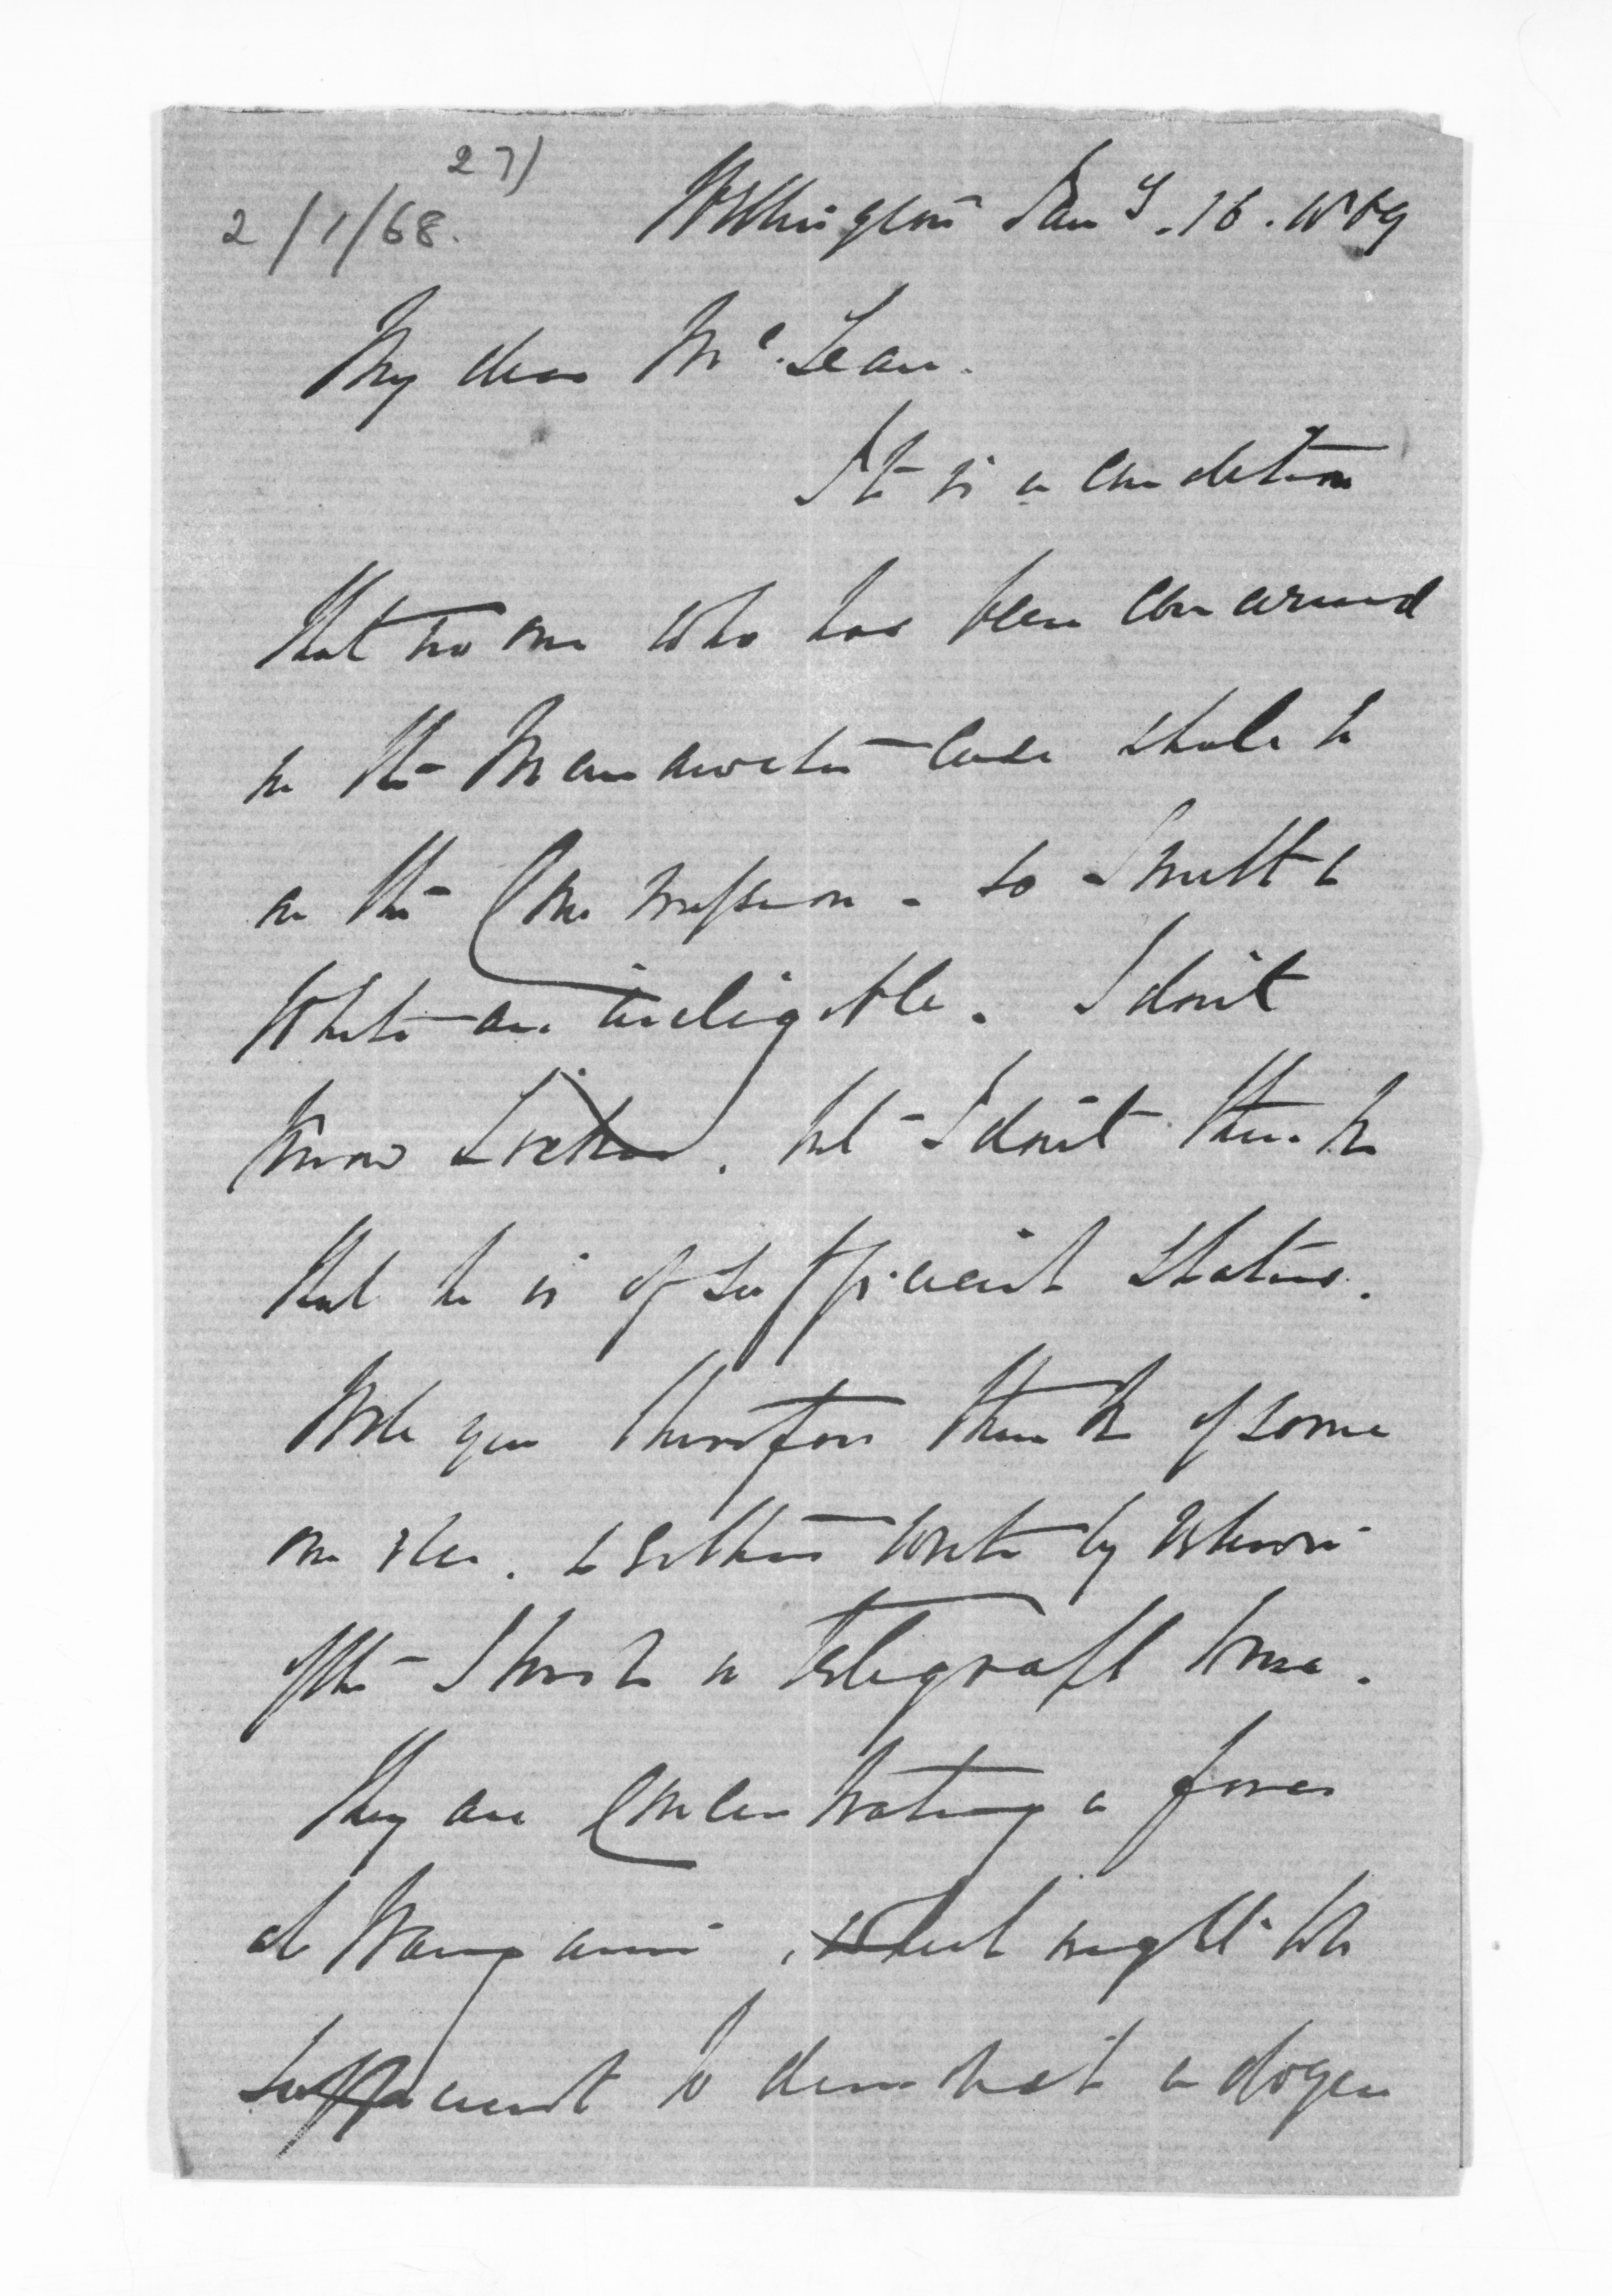 27)
2/1/68.
Wellington Jany. 16. 1869
My dear McLean.
It is a condition
that no one who has been concerned
in the Manawatu case shall be
on the Commission - so Smith &
White are ineligible. I don't
know . but I don't think
that he is of sufficient status.
Will you therefore think of some
one else. & either write by return
of the or Telegraph time.
They are concentrating a force
at Wanganui, what might be
sufficient to demolish a dozen